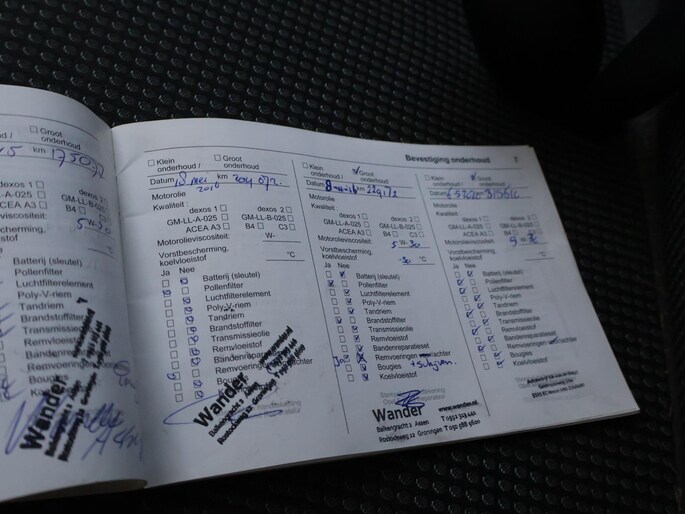 Groot
onderhoud
km
dexos 2
GM-LL-A-025
GM-LL-B-025
ACEA A3 B4 C3
Motorolieviscositeit:
5 W-30
Vorstbescherming,
koelvloeistof °C
Ja Nee
Batterij (sleutel)
Pollenfilter
Luchtfilterelement
Poly-V-riem
Tandriem
Brandstoffilter
Transmissieolie
Remvloeistof
Bandenreparatieset
Remvoeringen
Bougies
Koelvloeistof
Wander
Balkengracht 2 Assen
Rostockweg 22 Groningen
Bevestiging onderhoud 7
Klein
onderhoud /
Groot
onderhoud
Datum 18 mei 2016 km
Motorolie
Kwaliteit :
dexos 1 dexos 2
GM-LL-A-025 GM-LL-B-025
ACEA A3 B4 C3
Motorolieviscositeit: W-
Vorstbescherming,
koelvloeistof °C
Ja Nee
Batterij (sleutel)
Pollenfilter
Luchtfilterelement
Poly-V-riem
Tandriem
Brandstoffilter
Transmissieolie
Remvloeistof
Bandenreparatieset
Remvoeringen
Bougies
Koelvloeistof
Wander
Balkengracht 2 Assen
Rostockweg 22 Groningen
Klein
onderhoud /
Groot
onderhoud
Datum km
Motorolie
Kwaliteit :
dexos 1 dexos 2
GM-LL-A-025 GM-LL-B-025
ACEA A3 B4 C3
Motorolieviscositeit: 5 W-30
Vorstbescherming,
koelvloeistof -30 °C
Ja Nee
Batterij (sleutel)
Pollenfilter
Luchtfilterelement
Poly-V-riem
Tandriem
Brandstoffilter
Transmissieolie
Remvloeistof
Bandenreparatieset
Ja Remvoeringen achter
Bougies + schijven
Koelvloeistof
Wander www.wander.nl
Balkengracht 2 Assen
Rostockweg 22 Groningen
Klein
onderhoud /
Groot
onderhoud
Datum
Motorolie
Kwaliteit :
dexos 1 dexos 2
GM-LL-A-025 GM-LL-B-025
ACEA A3 B4 C3
Motorolieviscositeit: 5 W-30
Vorstbescherming,
koelvloeistof °C
Ja Nee
Batterij (sleutel)
Pollenfilter
Luchtfilterelement
Poly-V-riem
Tandriem
Brandstoffilter
Transmissieolie
Remvloeistof
Bandenreparatieset
Remvoeringen
Bougies
Koelvloeistof